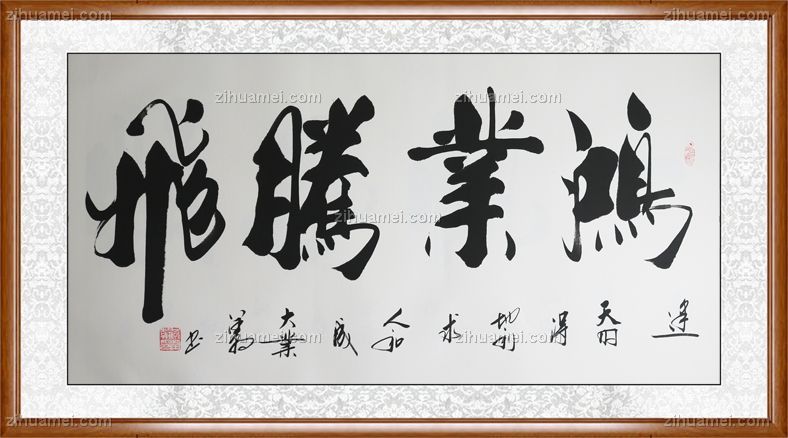 鴻業騰飛
逢天时得地利求人和成大業
书
zihuamei.com zihuamei.com zihuamei.com
zihuamei.com zihuamei.com
zihuamei.com
zihuamei.com zihuamei.com
zihuamei.com zihuamei.com zihuamei.com